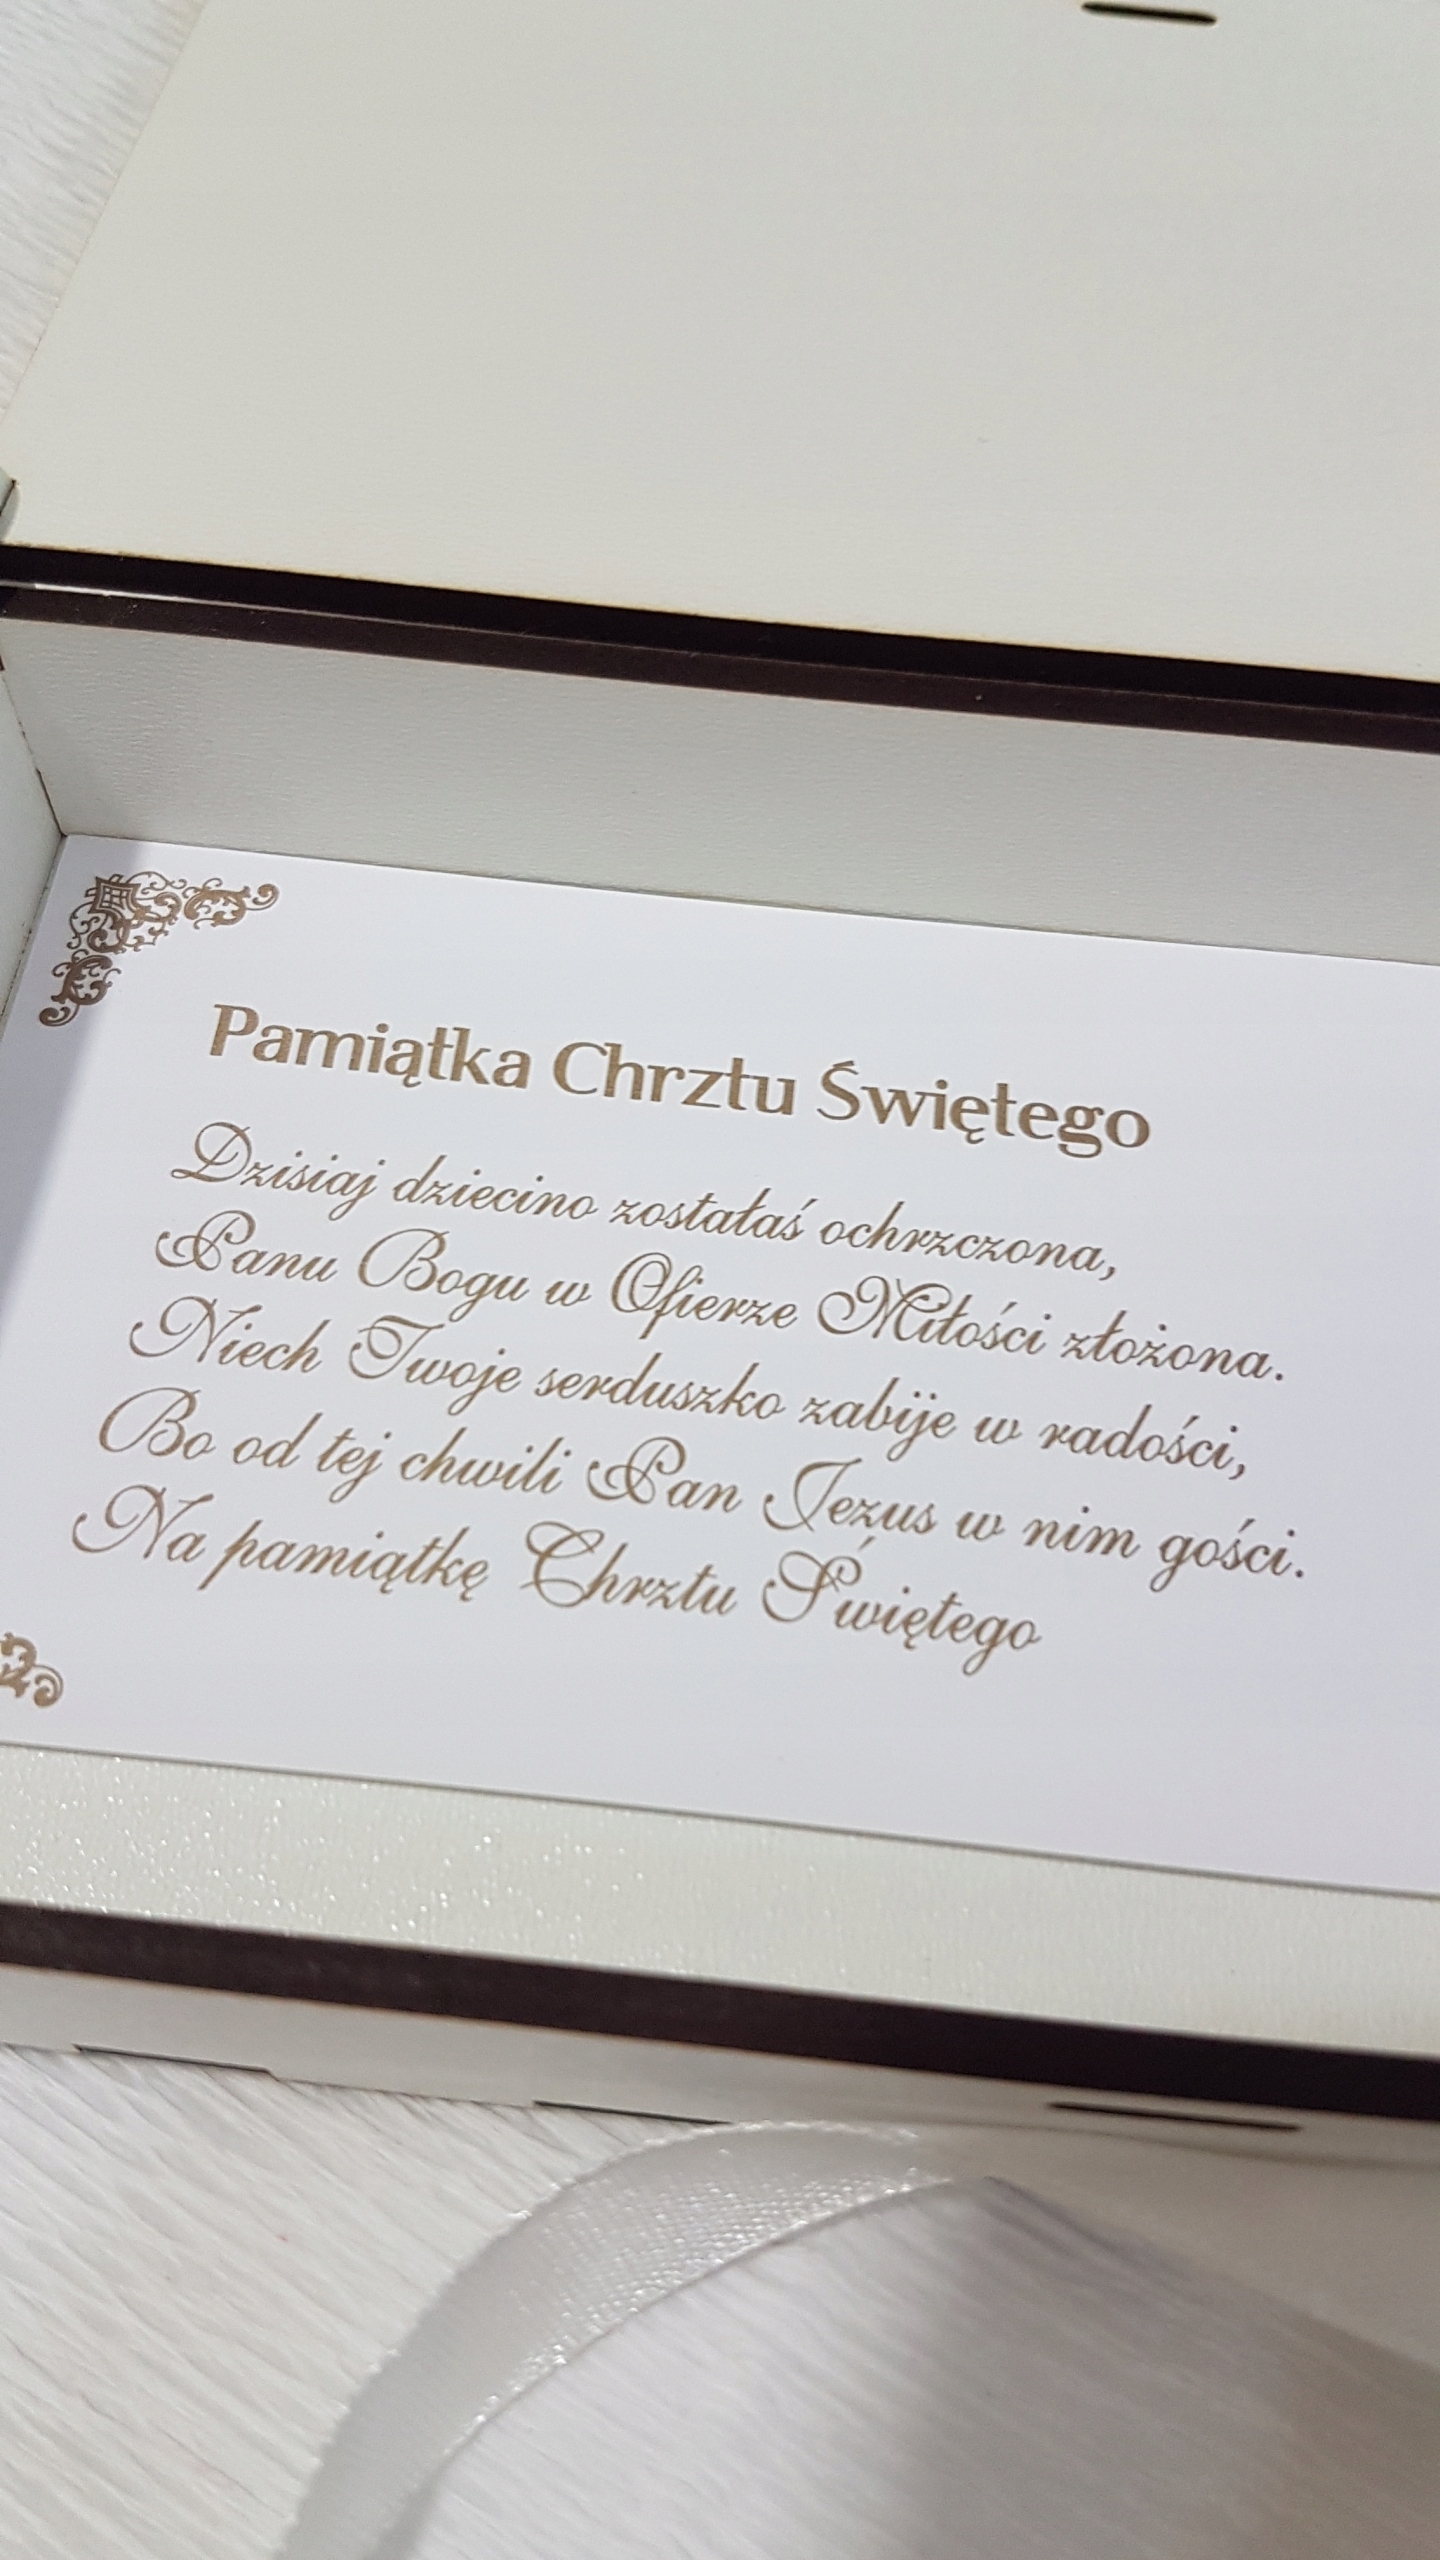 Pamiątka Chrztu Świętego
Dzisiaj dziecino zostałaś ochrzczona,
Panu Bogu w Ofierze Miłości złożona.
Niech Twoje serduszko zabije w radości,
Bo od tej chwili Pan Jezus w nim gości.
Na pamiątkę Chrztu Świętego